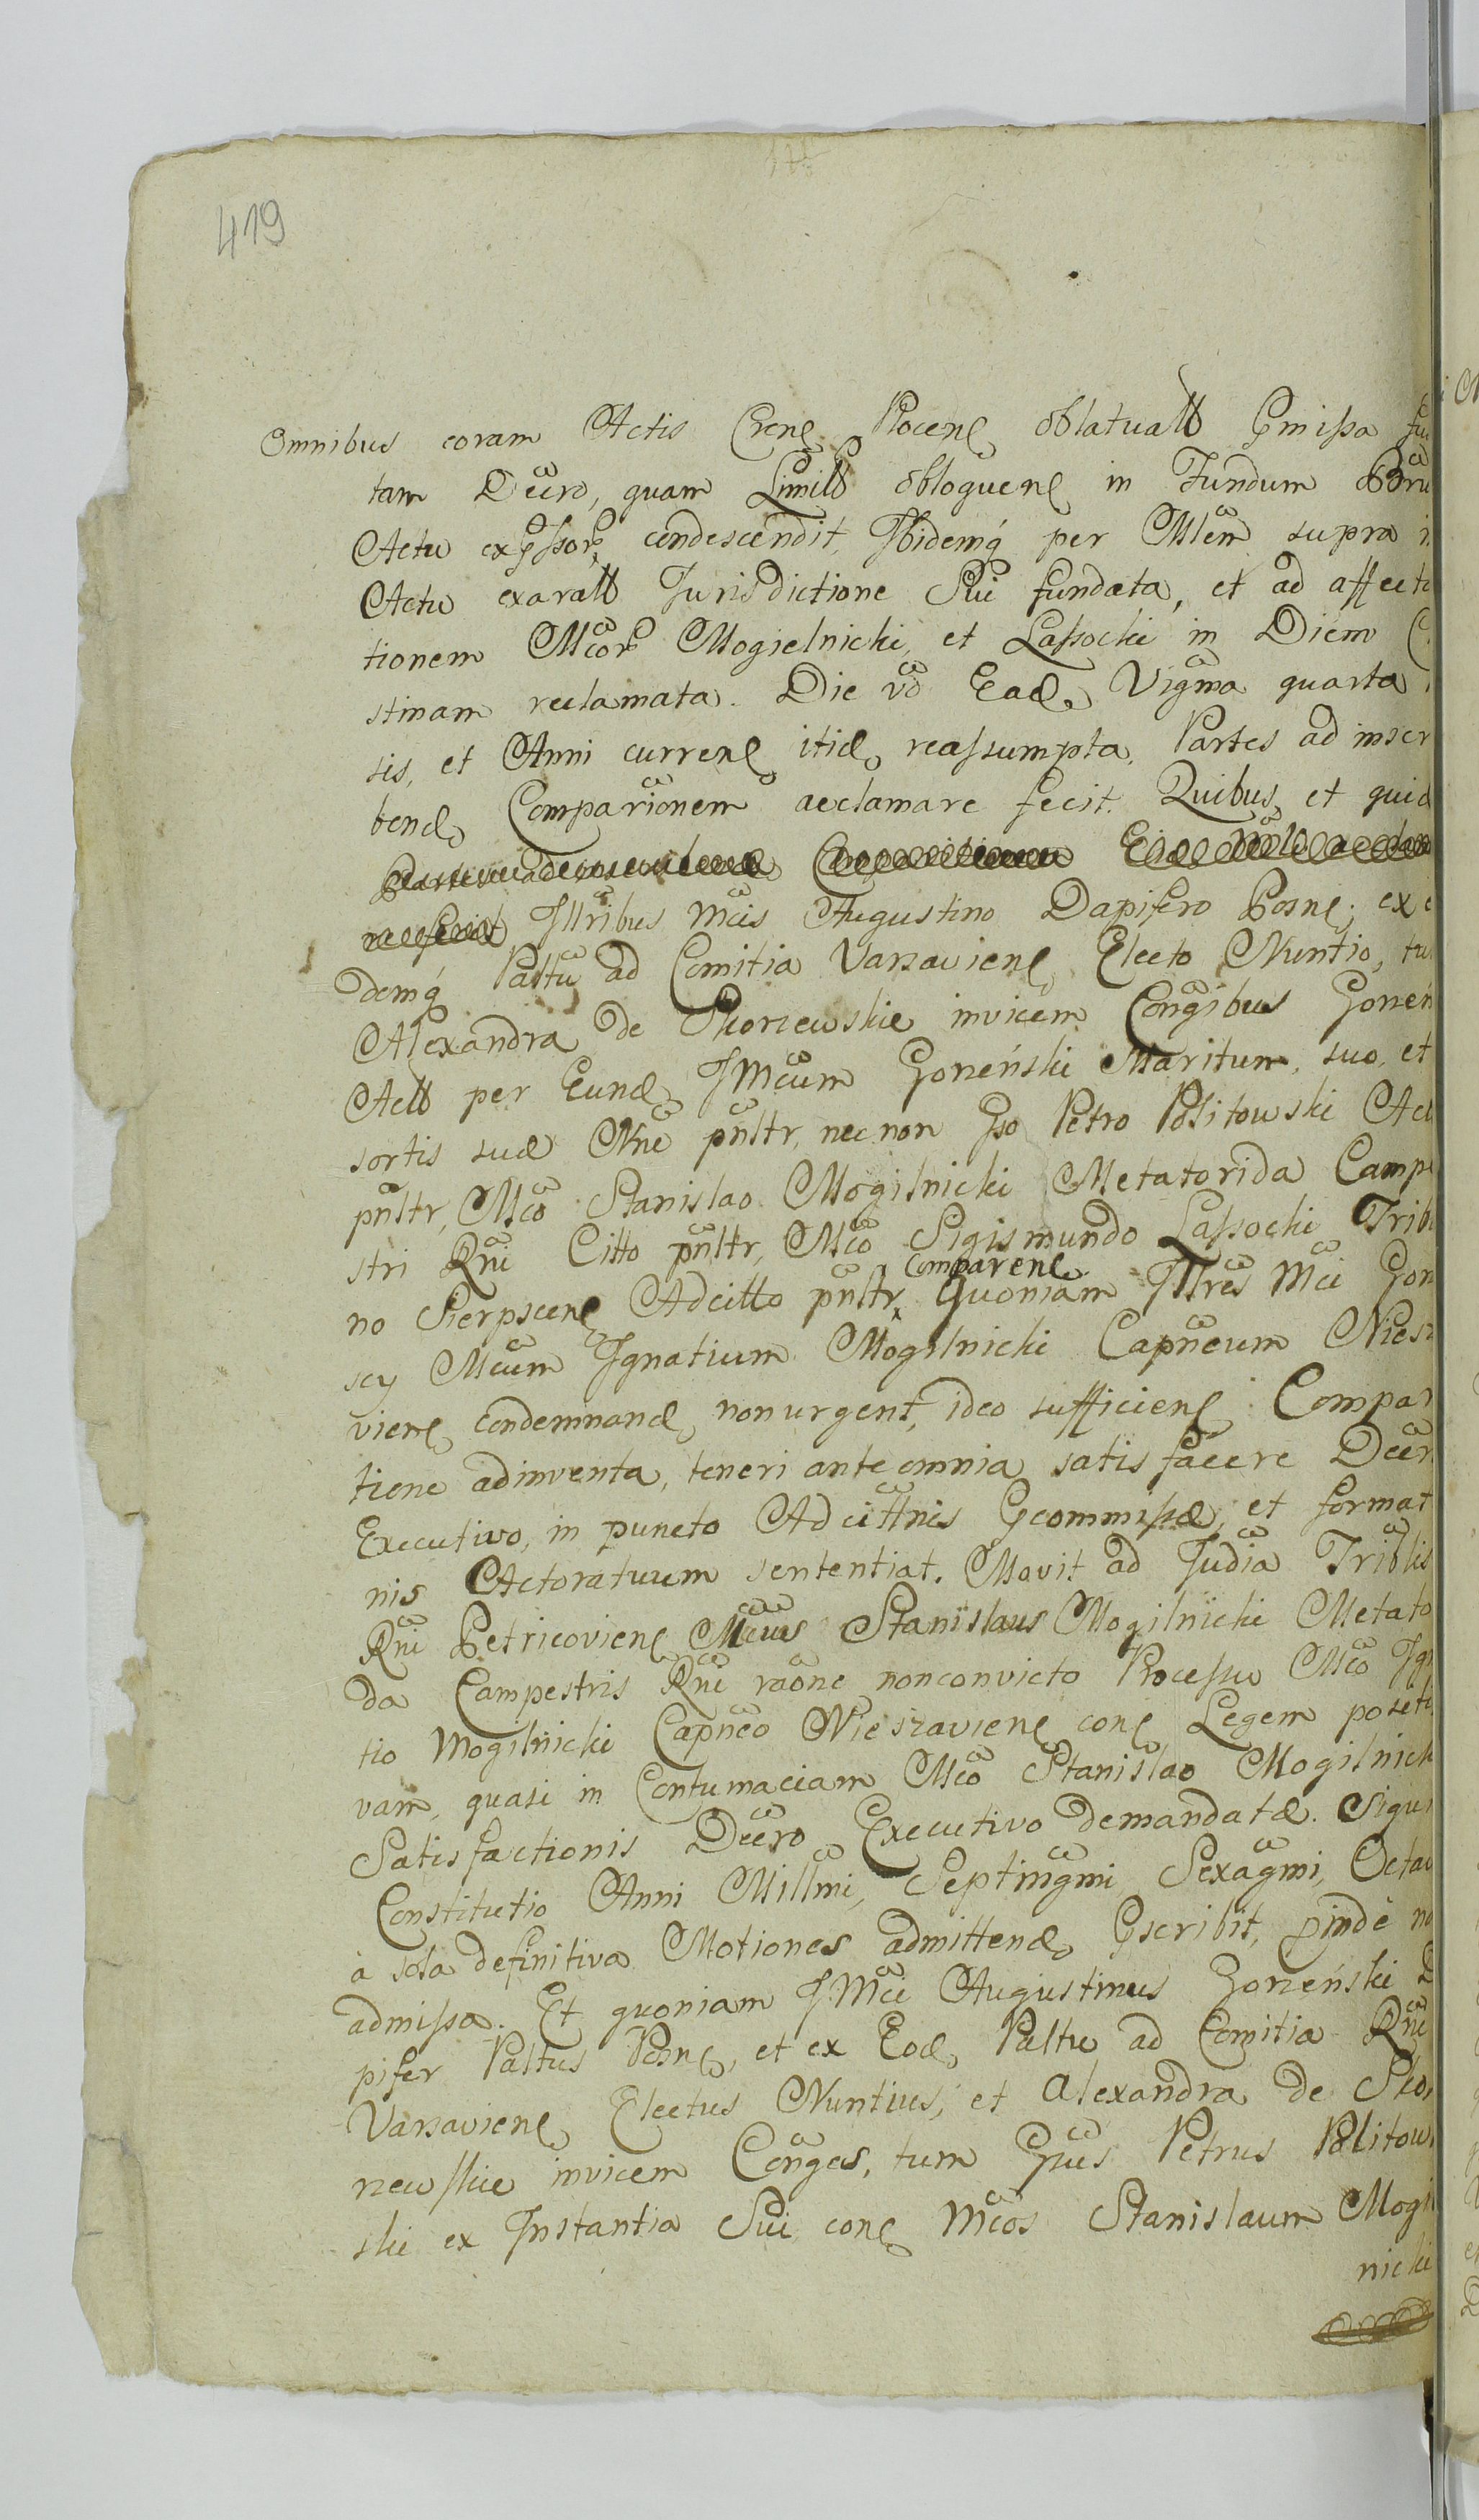 419
Omnibus coram Actis Crens Plocens oblatuall Pmissa fu
tam Decro, quam Limill obloquens in Fundum Boru
Actu expssor condescendit, Ibidemq per Mlem supra i
Actu exarall Jurisdictione Sui fundata, et ad affecta
tionem Mcor Mogielnicki, et Lassocki in Diem C
stinam reclamata. Die vo Ead Vigma quarta
sis, et Anni currens itid reassumpta, Partes ad inscr
bend Comparionem acclamare fecit. Quibus, et quid
Illribus Mcis Augustino Dapifero Posns, ex e
demq Paltu ad Comitia Varsaviens Electo Nuntio, tu
Alexandra de Skorzewskie invicem Congibus Gorzeń
Actt per Eund IMcum Gorzeński Maritum, suo, et
sortis suæ Nne pnltr, nec non Gso Petro Politowski Act
pnltr, Mco Stanislao Mogilnicki Metatorida Campe
stri Rni Citto pnltr, Mco Sigismundo Lassocki Tribu
no Sierpscens Adcitto pnltr, comparens Quoniam Illres Mci Gorz
scy Mcum Ignatium Mogilnicki Capneum Niesz
viens condemnand, non urgent, ideo sufficiens Compar
tione adinventa, teneri ante omnia satis facere Decr
Executivo, in puncto Adcittnis Pcommissæ, et format
nis Actoratuum sententiat. Movit ad Judia Triblis
Rni Petricoviens Mcus Stanislaus Mogilnicki Metato
da Campestris Rni raone non convicto Processu Mco Igna
tio Mogilnicki Capneo Nieszaviens cons Legem positi
vam, quasi in Contumaciam Mco Stanislao Mogilnick
Satisfactionis Decro Executivo demandatæ. Siqui
Constitutio Anni Millmi, Septingmi Sexagmi, Octav
à sola definitiva Motiones admittend Pscribit, pinde no
admissa. Et quoniam IMci Augustinus Gorzeński D
pifer Paltus Posns, et ex Eod Paltu ad Comitia Rni
Varsaviens Electus Nuntius, et Alexandra de Skor
zewskie invicem Conges, tum Gsus Petrus Politow
ski ex Instantia Sui cons Mcos Stanislaum Mogil
nicki